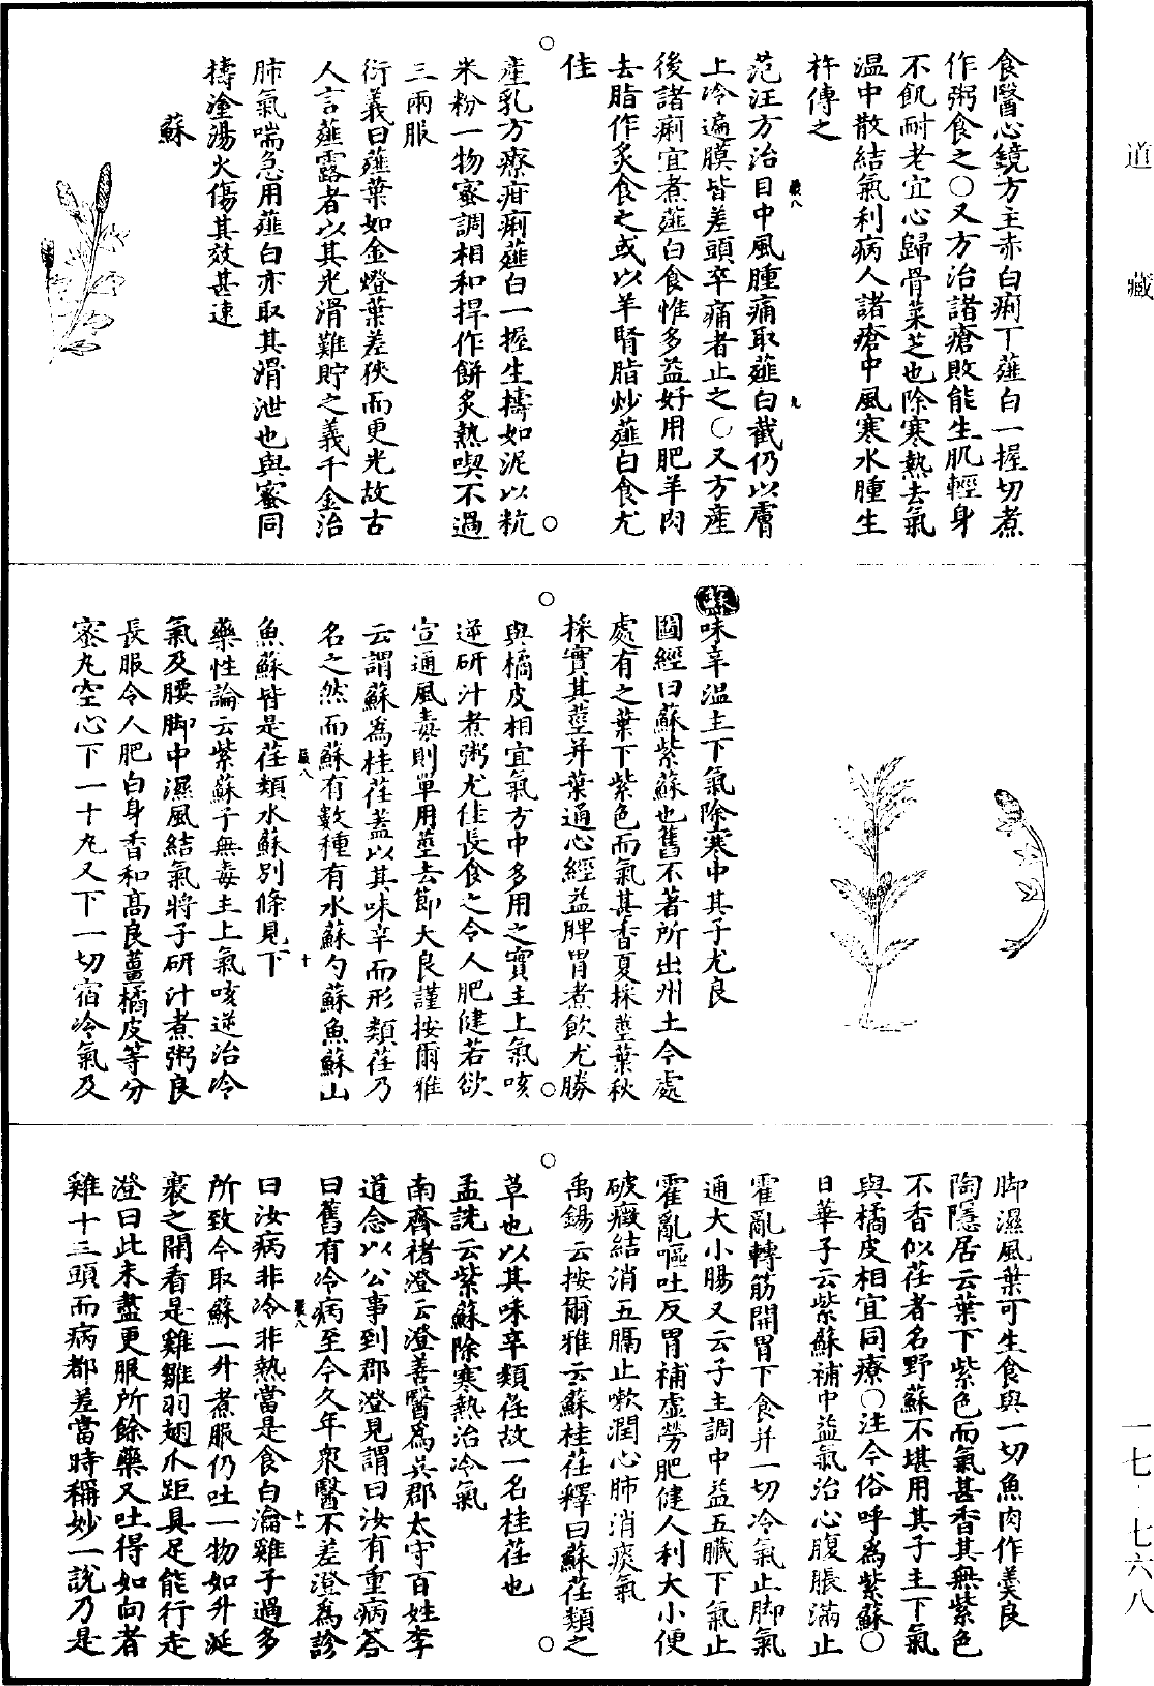 道藏
食醫心鏡方主赤白痢下薤白一握切煮
作粥食之○又方治諸瘡敗能生肌輕身
不飢耐老宜心歸骨菜芝也除寒熱去氣
温中散結氣利病人諸瘡中風寒水腫生
杵傅之
范汪方治目中風腫痛取薤白截仍以膚
上冷遍膜皆差頭卒痛者止之○又方産
後諸痢宜煮薤白食惟多益好用肥羊肉
去脂作炙食之或以羊腎脂炒薤白食尤
佳
産乳方療疳痢薤白一握生擣如泥以粇
米粉一物蜜調相和捍作餅炙熱喫不過
三兩服
衍義曰薤葉如金燈葉差狹而更光故古
人言薤露者以其光滑難貯之義千金治
肺氣喘急用薤白亦取其滑泄也與蜜同
擣塗湯火傷其效甚速
蘇
蘇味辛温主下氣除寒中其子尤良
圖經曰蘇紫蘇也舊不著所出州土今處
處有之葉下紫色而氣甚香夏採莖葉秋
採實其莖并葉通心經益脾胃煮飲尤勝
與橘皮相宜氣方中多用之實主上氣咳
逆研汁煮粥尤佳長食之令人肥健若欲
宣通風毒則單用莖去節大良謹按爾雅
云謂蘇爲桂荏蓋以其味辛而形類荏乃
名之然而蘇有數種有水蘇勺蘇魚蘇山
魚蘇皆是荏類水蘇别條見下
藥性論云紫蘇子無毒主上氣咳逆治冷
氣及腰脚中濕風結氣將子研汁煮粥良
長服令人肥白身香和高良薑橘皮等分
蜜丸空心下一十丸又下一切宿冷氣及
脚濕風葉可生食與一切魚肉作羹良
陶隱居云葉下紫色而氣甚香其無紫色
不香似荏者名野蘇不堪用其子主下氣
與橘皮相宜同療○注今俗呼爲紫蘇○
日華子云紫蘇補中益氣治心腹脹滿止
霍亂轉筋開胃下食并一切冷氣止脚氣
通大小腸又云子主調中益五臟下氣止
霍亂嘔吐反胃補虚勞肥健人利大小便
破癥結消五膈止嗽潤心肺消痰氣
禹錫云按爾雅云蘇桂荏釋曰蘇荏類之
草也以其味辛類荏故一名桂荏也
孟詵云紫蘇除寒熱治冷氣
南齊褚澄云澄善醫爲吴郡太守百姓李
道念以公事到郡澄見謂曰汝有重病荅
曰舊有冷病至今久年衆醫不差澄爲診
曰汝病非冷非熱當是食白瀹雞子過多
所致令取蘇一升煮服仍吐一物如升涎
裹之開看是雞雛羽翅爪距具足能行走
澄曰此未盡更服所餘藥又吐得如向者
雞十三頭而病都差當時稱妙一説乃是
一七·七六八